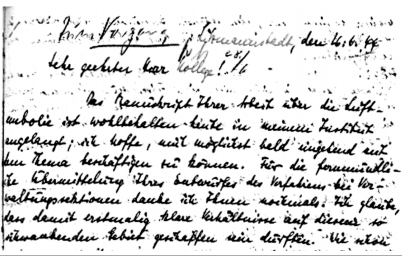 Litzmannstadt, den 16.6.44
Sehr geehrter Herr Kollege!
Das Manuskript Ihrer Arbeit über die Luft-
embolie ist wohlbehalten heute in meinem Institut
angelangt, ich hoffe, mich möglichst bald eingehend mit
dem Thema beschäftigen zu können. Für die freundli-
che Übermittelung Ihres Entwurfes des Verfahrens bei Ver-
waltungssektionen danke ich Ihnen nochmals. Ich glaube,
dass damit erstmalig klare Verhältnisse auf diesem so
schwankenden Gebiet geschaffen sein dürften. Wie